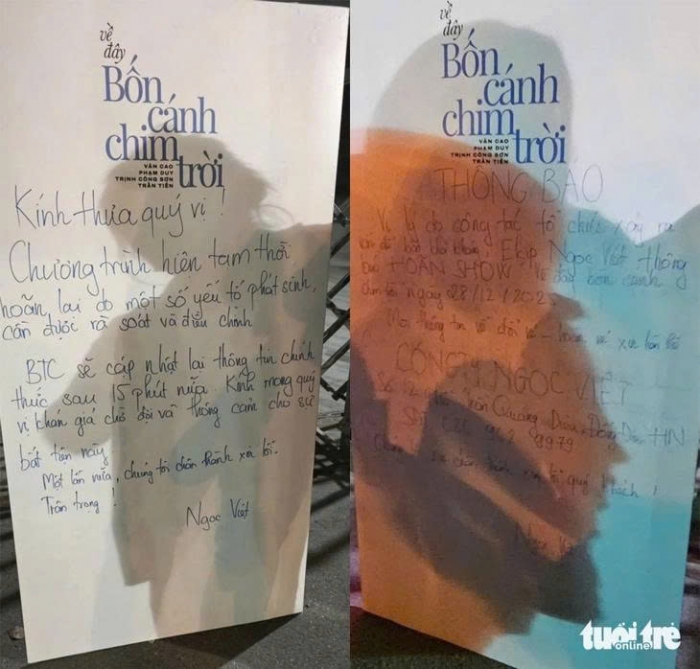 về
đây
Bốn
cánh
chim
trời
VĂN CAO
PHẠM DUY
TRỊNH CÔNG SƠN
TRẦN TIẾN
Kính thưa quý vị !
Chương trình hiện tạm thời
hoãn lại do một số yếu tố phát sinh,
cần được rà soát và điều chỉnh
BTC sẽ cập nhật lại thông tin chính
thức sau 15 phút nữa. Kính mong quý
vị khán giả chờ đợi và thông cảm cho sự
bất tiện này
Một lần nữa, chúng tôi chân thành xin lỗi.
Trân trọng !
Ngọc Việt
về
đây
Bốn
cánh
chim
trời
VĂN CAO
PHẠM DUY
TRỊNH CÔNG SƠN
TRẦN TIẾN
THÔNG BÁO
Vì lý do công tác tổ chức xảy ra
bất khả kháng, Ekip Ngọc Việt thông
báo HOÃN SHOW Về đây bốn cánh
chim trời ngày 28/12/2025
Mọi thông tin về đổi vé - hoàn vé xin liên hệ
CÔNG TY NGỌC VIỆT
Số Trần Quang Diệu - Đống Đa - HN
chân thành xin lỗi quý khách !
Ngọc Việt
tuổi trẻ
online